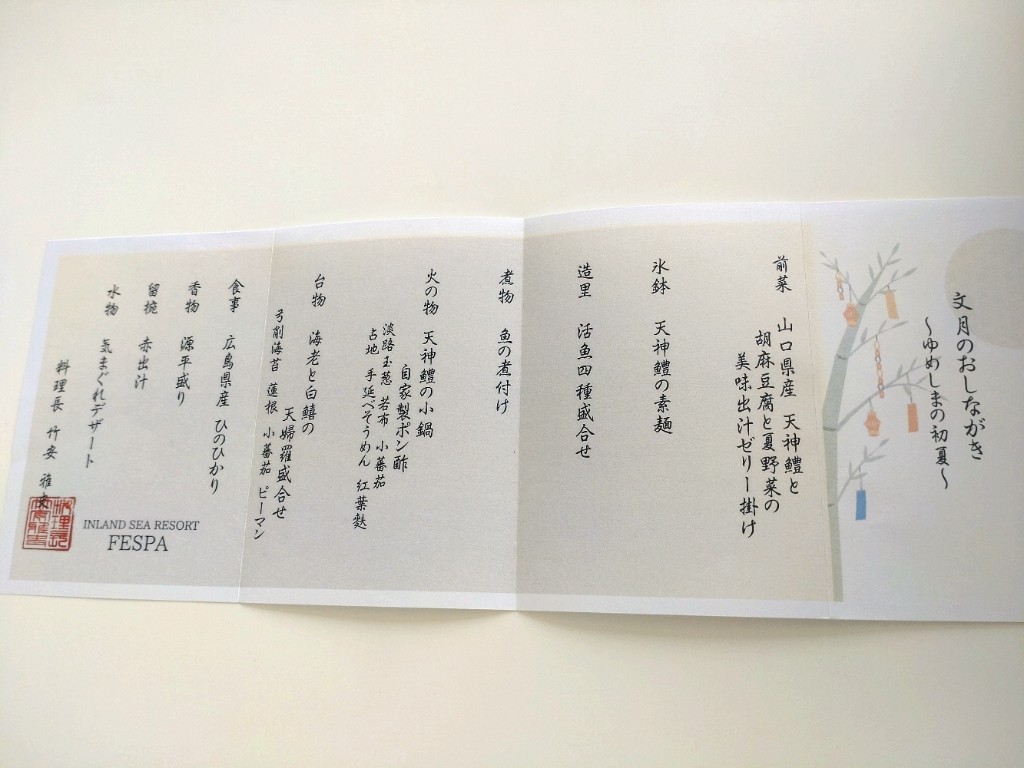 文月のおしながき
～ゆめしまの初夏～
前菜　山口県産　天神鱧と
胡麻豆腐と夏野菜の
美味出汁ゼリー掛け
氷鉢　天神鱧の素麺
造里　活魚四種盛合せ
煮物　魚の煮付け
火の物　天神鱧の小鍋
自家製ポン酢
淡路玉葱　若布　小蕃茄
占地　手延べそうめん　紅葉麸
台物　海老と白鱚の
天婦羅盛合せ
弓削海苔　蓮根　小蕃茄　ピーマン
食事　広島県産　ひのひかり
香物　源平盛り
留椀　赤出汁
水物　気まぐれデザート
料理長　竹安　雅
INLAND SEA RESORT
FESPA